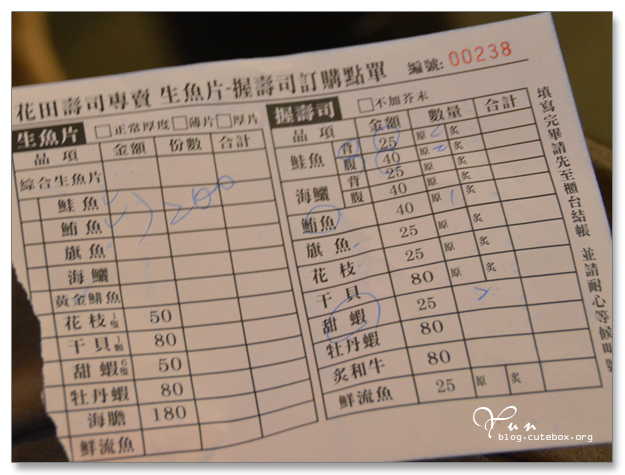 花田壽司專賣 生魚片-握壽司訂購點單
編號: 00238
生魚片 □正常厚度□薄片□厚片
品項 金額 份數 合計
綜合生魚片
鮭魚
鮪魚 200
旗魚
海鱺
黃金鯡魚
花枝1隻 50
干貝1顆 80
甜蝦6隻 50
牡丹蝦 80
海膽 180
鮮流魚
握壽司 □不加芥末
品項 金額 數量 合計
鮭魚 背 25 原 炙
腹 40 原 炙
海鱺 背 25
腹 40 原 炙
鮪魚 40 原
旗魚 25
花枝 25 原 炙
干貝 80 原 炙
甜蝦 25
牡丹蝦 80
炙和牛 80
鮮流魚 25 原 炙
填寫完畢請先至櫃台結帳 並請耐心等候
Yun
blog.cutebox.org